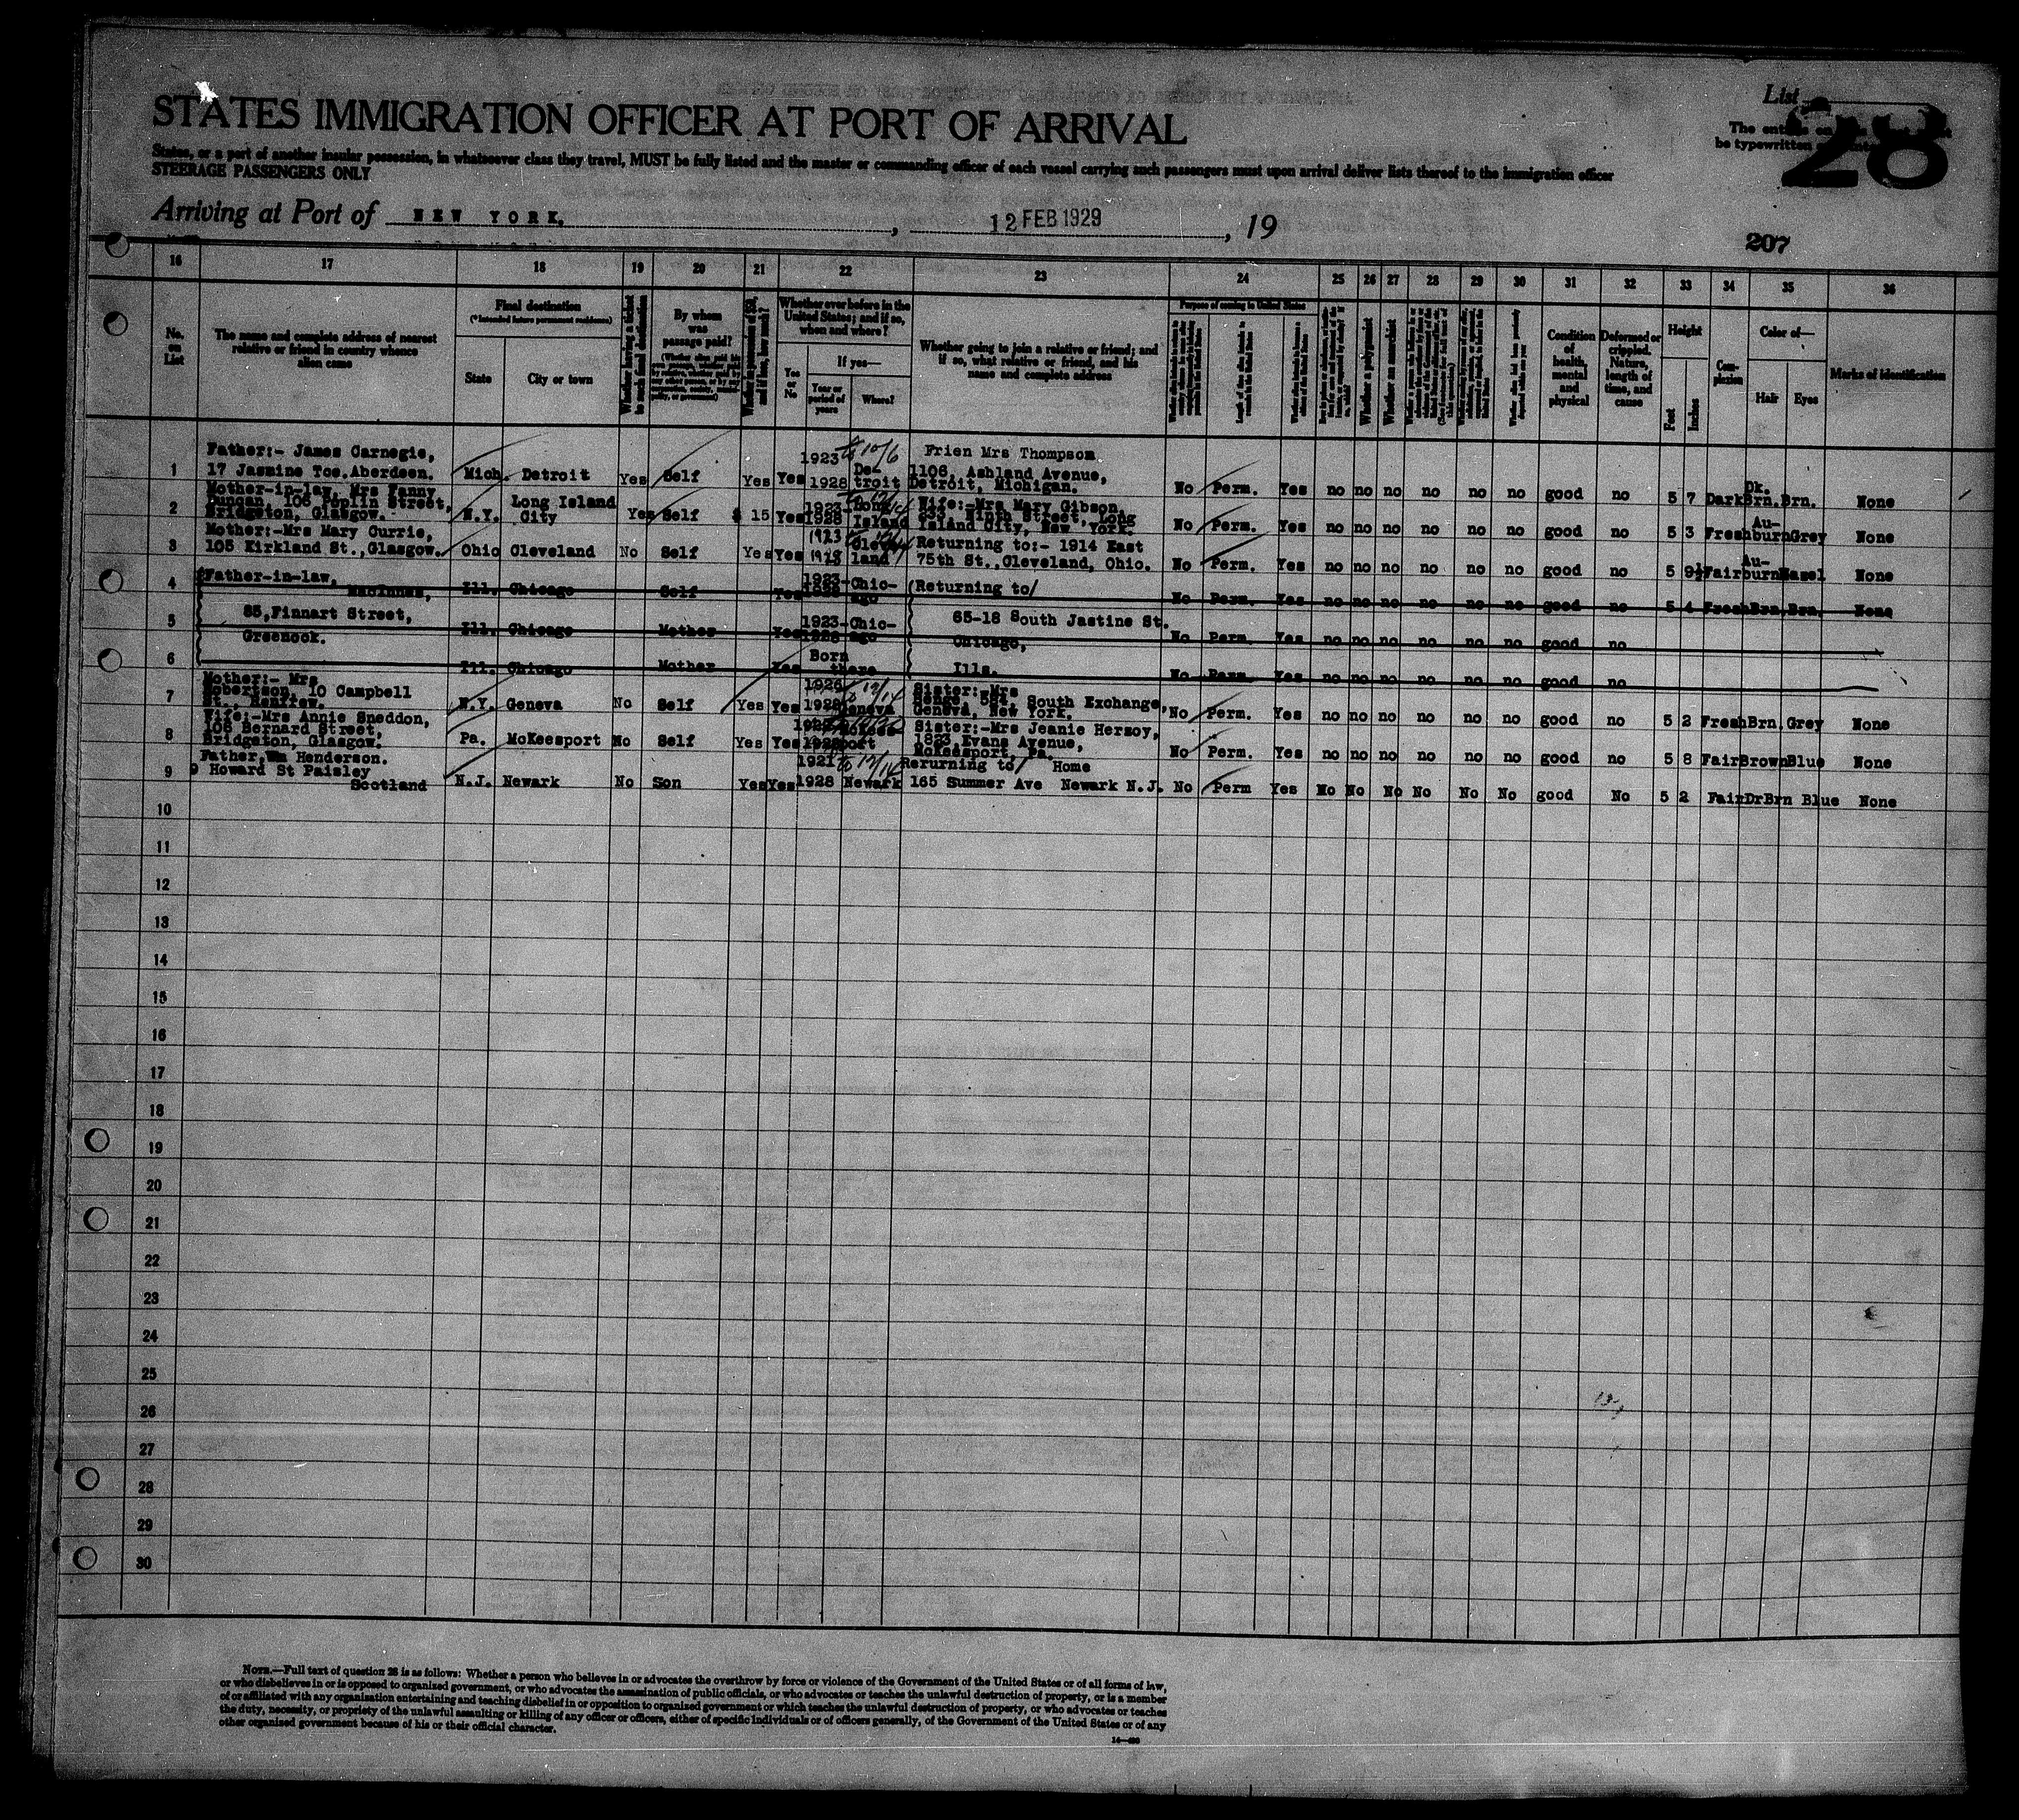 List
28
The entries on
be typewritten
STATES IMMIGRATION OFFICER AT PORT OF ARRIVAL
States, or a port of another insular possession, in whatsoever class they travel, MUST be fully listed and the master or commanding officer of each vessel carrying such passengers must upon arrival deliver lists thereof to the immigration officer
STEERAGE PASSENGERS ONLY
Arriving at Port of NEW YORK. , 12 FEB 1929 , 19
207
16 17 18 19 20 21 22 23 24 25 26 27 28 29 30 31 32 33 34 35 36
No. on List
The name and complete address of nearest relative or friend in country whence alien came
Final destination
(*Intended future permanent residence)
State
City or town
Whether having a ticket to such final destination
By whom was passage paid?
Whether ever before in the United States; and if so, when and where?
Yes or No
If yes—
Year or period of years
Where?
Whether going to join a relative or friend; and if so, what relative or friend, and his name and complete address
Purpose of coming to United States
Whether a polygamist
Whether an anarchist
Condition of health, mental and physical
Deformed or crippled. Nature, length of time, and cause
Height
Feet
Inches
Complexion
Color of—
Hair
Eyes
Marks of identification
1 Father:- James Carnegie, 17 Jasmine Tce. Aberdeen. Mich. Detroit Yes Self Yes Yes 1923 1928 Detroit Frien Mrs Thompson 1106, Ashland Avenue, Detroit, Michigan. No Perm. Yes no no no no no no good no 5 7 Dark Dk. Brn. Brn. None
2 Mother-in-law, Mrs Fanny Duncan, 106 Poplin Street, Bridgeton, Glasgow. N.Y. Long Island City Yes Self $ 15 Yes 1923 1928 Long Island Wife:-Mrs Mary Gibson, 333, Ninth Street, Long Island City, New York. No Perm. Yes no no no no no no good no 5 3 Fresh Au-burn Grey None
3 Mother:-Mrs Mary Currie, 105 Kirkland St., Glasgow. Ohio Cleveland No Self Yes Yes 1923 1928 Cleveland Returning to:- 1914 East 75th St., Cleveland, Ohio. No Perm. Yes no no no no no no good no 5 9½ Fair Au-burn Hazel None
4 Father-in-law, MacInnes, Ill. Chicago Self Yes 1923-1928 Chic-ago (Returning to/ No Perm. Yes no no no no no no good no 5 4 Fresh Brn. Brn. None
5 85, Finnart Street, Ill. Chicago Mother Yes 1923-1928 Chic-ago 65-18 South Jastine St. No Perm. Yes no no no no no no good no
6 Greenock. Ill. Chicago Mother Yes Born there Chicago, Ills. No Perm. Yes no no no no no no good no
7 Mother:- Mrs Robertson, 10 Campbell St., Renfrew. N.Y. Geneva No Self Yes Yes 1928 Geneva Sister:-Mrs South Exchange, Geneva, New York. No Perm. Yes no no no no no no good no 5 2 Fresh Brn. Grey None
8 Wife:-Mrs Annie Sneddon, 108 Bernard Street, Bridgeton, Glasgow. Pa. McKeesport No Self Yes Yes McKeesport Sister:-Mrs Jeanie Herzoy, 1823, Evans Avenue, McKeesport, Pa. No Perm. Yes no no no no no no good no 5 8 Fair Brown Blue None
9 Father, Wm Henderson. 9 Howard St Paisley Scotland N.J. Newark No Son Yes Yes 1921 1928 Newark Rerurning to/ Home 165 Summer Ave Newark N.J. No Perm Yes No No No No No No good No 5 2 Fair DrBrn Blue None
10
11
12
13
14
15
16
17
18
19
20
21
22
23
24
25
26
27
28
29
30
NOTE.—Full text of question 28 is as follows: Whether a person who believes in or advocates the overthrow by force or violence of the Government of the United States or of all forms of law,
or who disbelieves in or is opposed to organized government, or who advocates the assassination of public officials, or who advocates or teaches the unlawful destruction of property, or is a member
of or affiliated with any organization entertaining and teaching disbelief in or opposition to organized government or which teaches the unlawful destruction of property, or who advocates or teaches
the duty, necessity, or propriety of the unlawful assaulting or killing of any officer or officers, either of specific individuals or of officers generally, of the Government of the United States or of any
other organized government because of his or their official character.